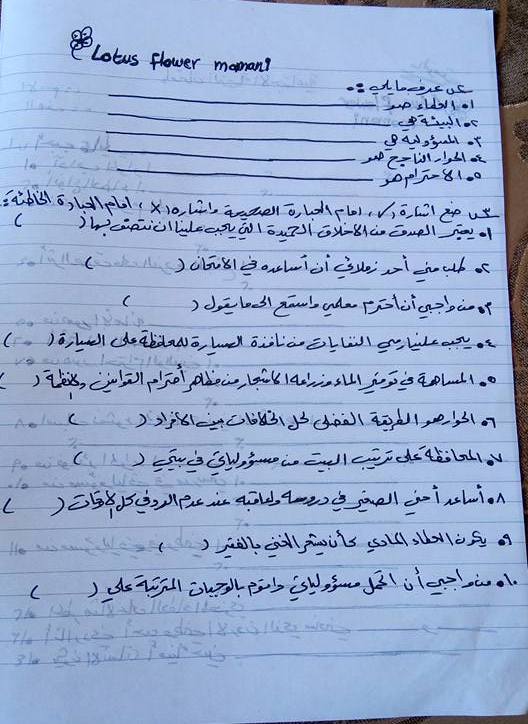 Lotus flower momani
س٢ عرف ما يلي :-
١. العطاء هو
٢. البيئة هي
٣. المسؤولية هي
٤. الحوار الناجح هو
٥. الاحترام هو
س٣ ضع اشارة (✓) امام العبارة الصحيحة واشارة (X) امام العبارة الخاطئة :-
١. يعتبر الصدق من الأخلاق الحميدة التي يجب علينا ان نتصف بها ( )
٢. طلب مني أحد زملائي أن أساعده في الامتحان ( )
٣. من واجبي أن أحترم معلمي واستمع الى ما يقول ( )
٤. يجب علينا رمي النفايات من نافذة السيارة للمحافظة على السيارة ( )
٥. المساهمة في توفير الماء وزراعة الاشجار من مظاهر أحترام القوانين والانظمة ( )
٦. الحوار هو الطريقة الفضلى لحل الخلافات بين الافراد ( )
٧. المحافظة على ترتيب البيت من مسؤولياتي في بيتي ( )
٨. أساعد أخي الصغير في دروسه واعاقبه عند عدم الرد في كل الاوقات ( )
٩. يكون العطاء المادي كأن يشعر الغني بالفقير ( )
١٠. من واجبي أن اتحمل مسؤولياتي واقوم بالوجبات المترتبة علي ( )